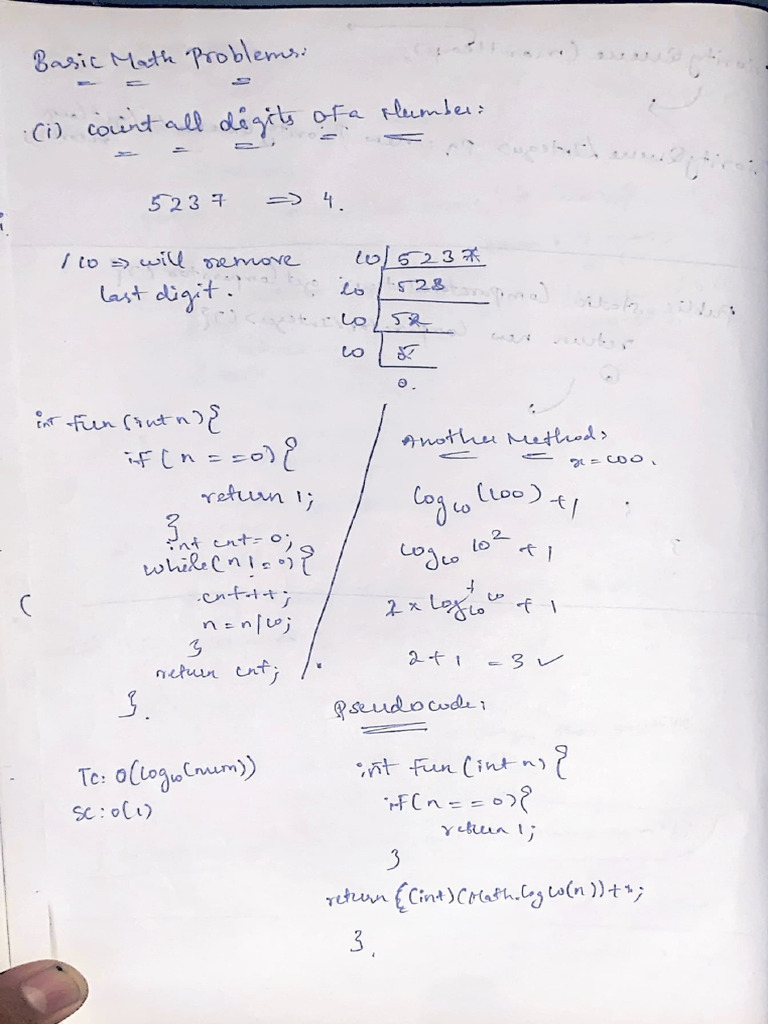 Basic Math Problems:
(i) count all digits of a Number:
5237 => 4.
/10 => will remove
last digit.
10/5237
10/523
10/52
10/5
0.
int fun(int n){
if(n==0){
return 1;
}
int cnt=0;
while(n!=0){
cnt++;
n=n/10;
}
return cnt;
}.
TC: O(log10(num))
SC: O(1)
Another Method:
n=100.
log10(100)+1
log10 10^2 +1
2 x log10 10 + 1
2+1 = 3 ✓
Pseudocode:
int fun(int n){
if(n==0){
return 1;
}
return {(int)(Math.log10(n))+1;
}.